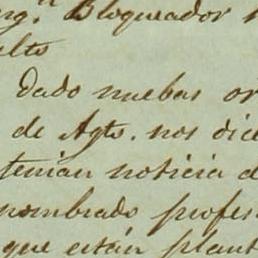 erg.n Bloqueador
elto
dado nuebas or
de Agto. nos dice
tenian noticia d
nombrado profes
que están plant